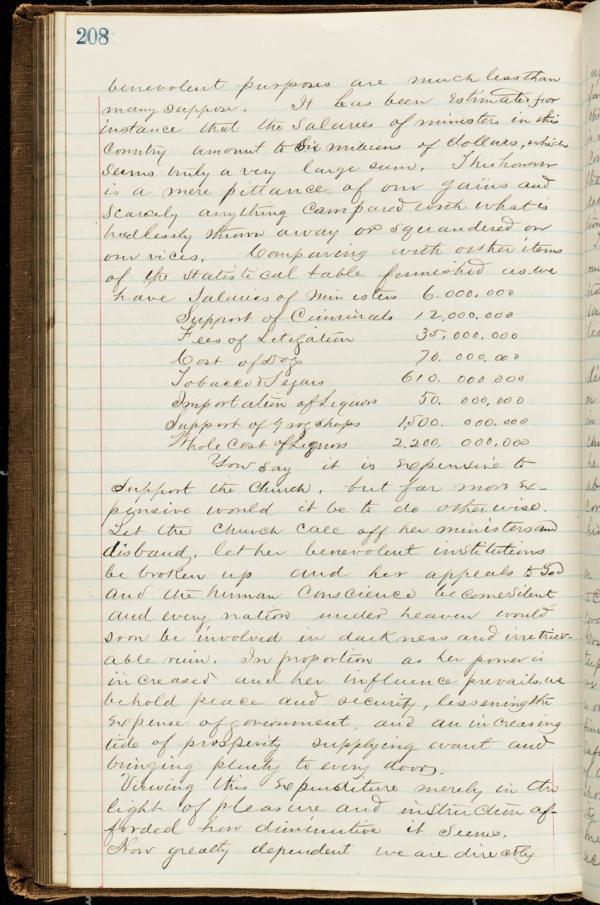 208
benevolent purposes are much less than
many suppose. It has been estimated for
instance that the Salaries of ministers in this
Country amount to Six millions of dollars, which
seems truly a very large sum. This however
is a mere pittance of our gains and
scarcely anything compared with what is
heedlessly thrown away or squandered on
our vices. Comparing with other items
of the statistical table furnished us we
have Salaries of Ministers 6.000,000
Support of Criminals 12,000,000
Fees of Litigation 35,000,000
Cost of Dogs 70.000,000
Tobacco & Segars 610.000 000
Importation of Liquors 50.000,000
Support of Grog Shops 1,500.000.000
Whole Cost of Liquors 2.200 000,000
You say it is expensive to
Support the Church, but far more ex-
pensive would it be to do otherwise.
Let the Church call off her ministers and
disband, let her benevolent institutions
be broken up and her appeals to God
and the human Conscience become silent
and every nation under heaven would
soon be involved in darkness and irretriev-
able ruin. In proportion as her power is
increased and her influence prevails we
behold peace and security, lessening the
expense of government, and an increasing
tide of prosperity supplying want and
bringing plenty to every door.
Viewing this expenditure merely in the
light of pleasure and instruction af-
forded how diminutive it seems.
Now greatly dependent we are directly